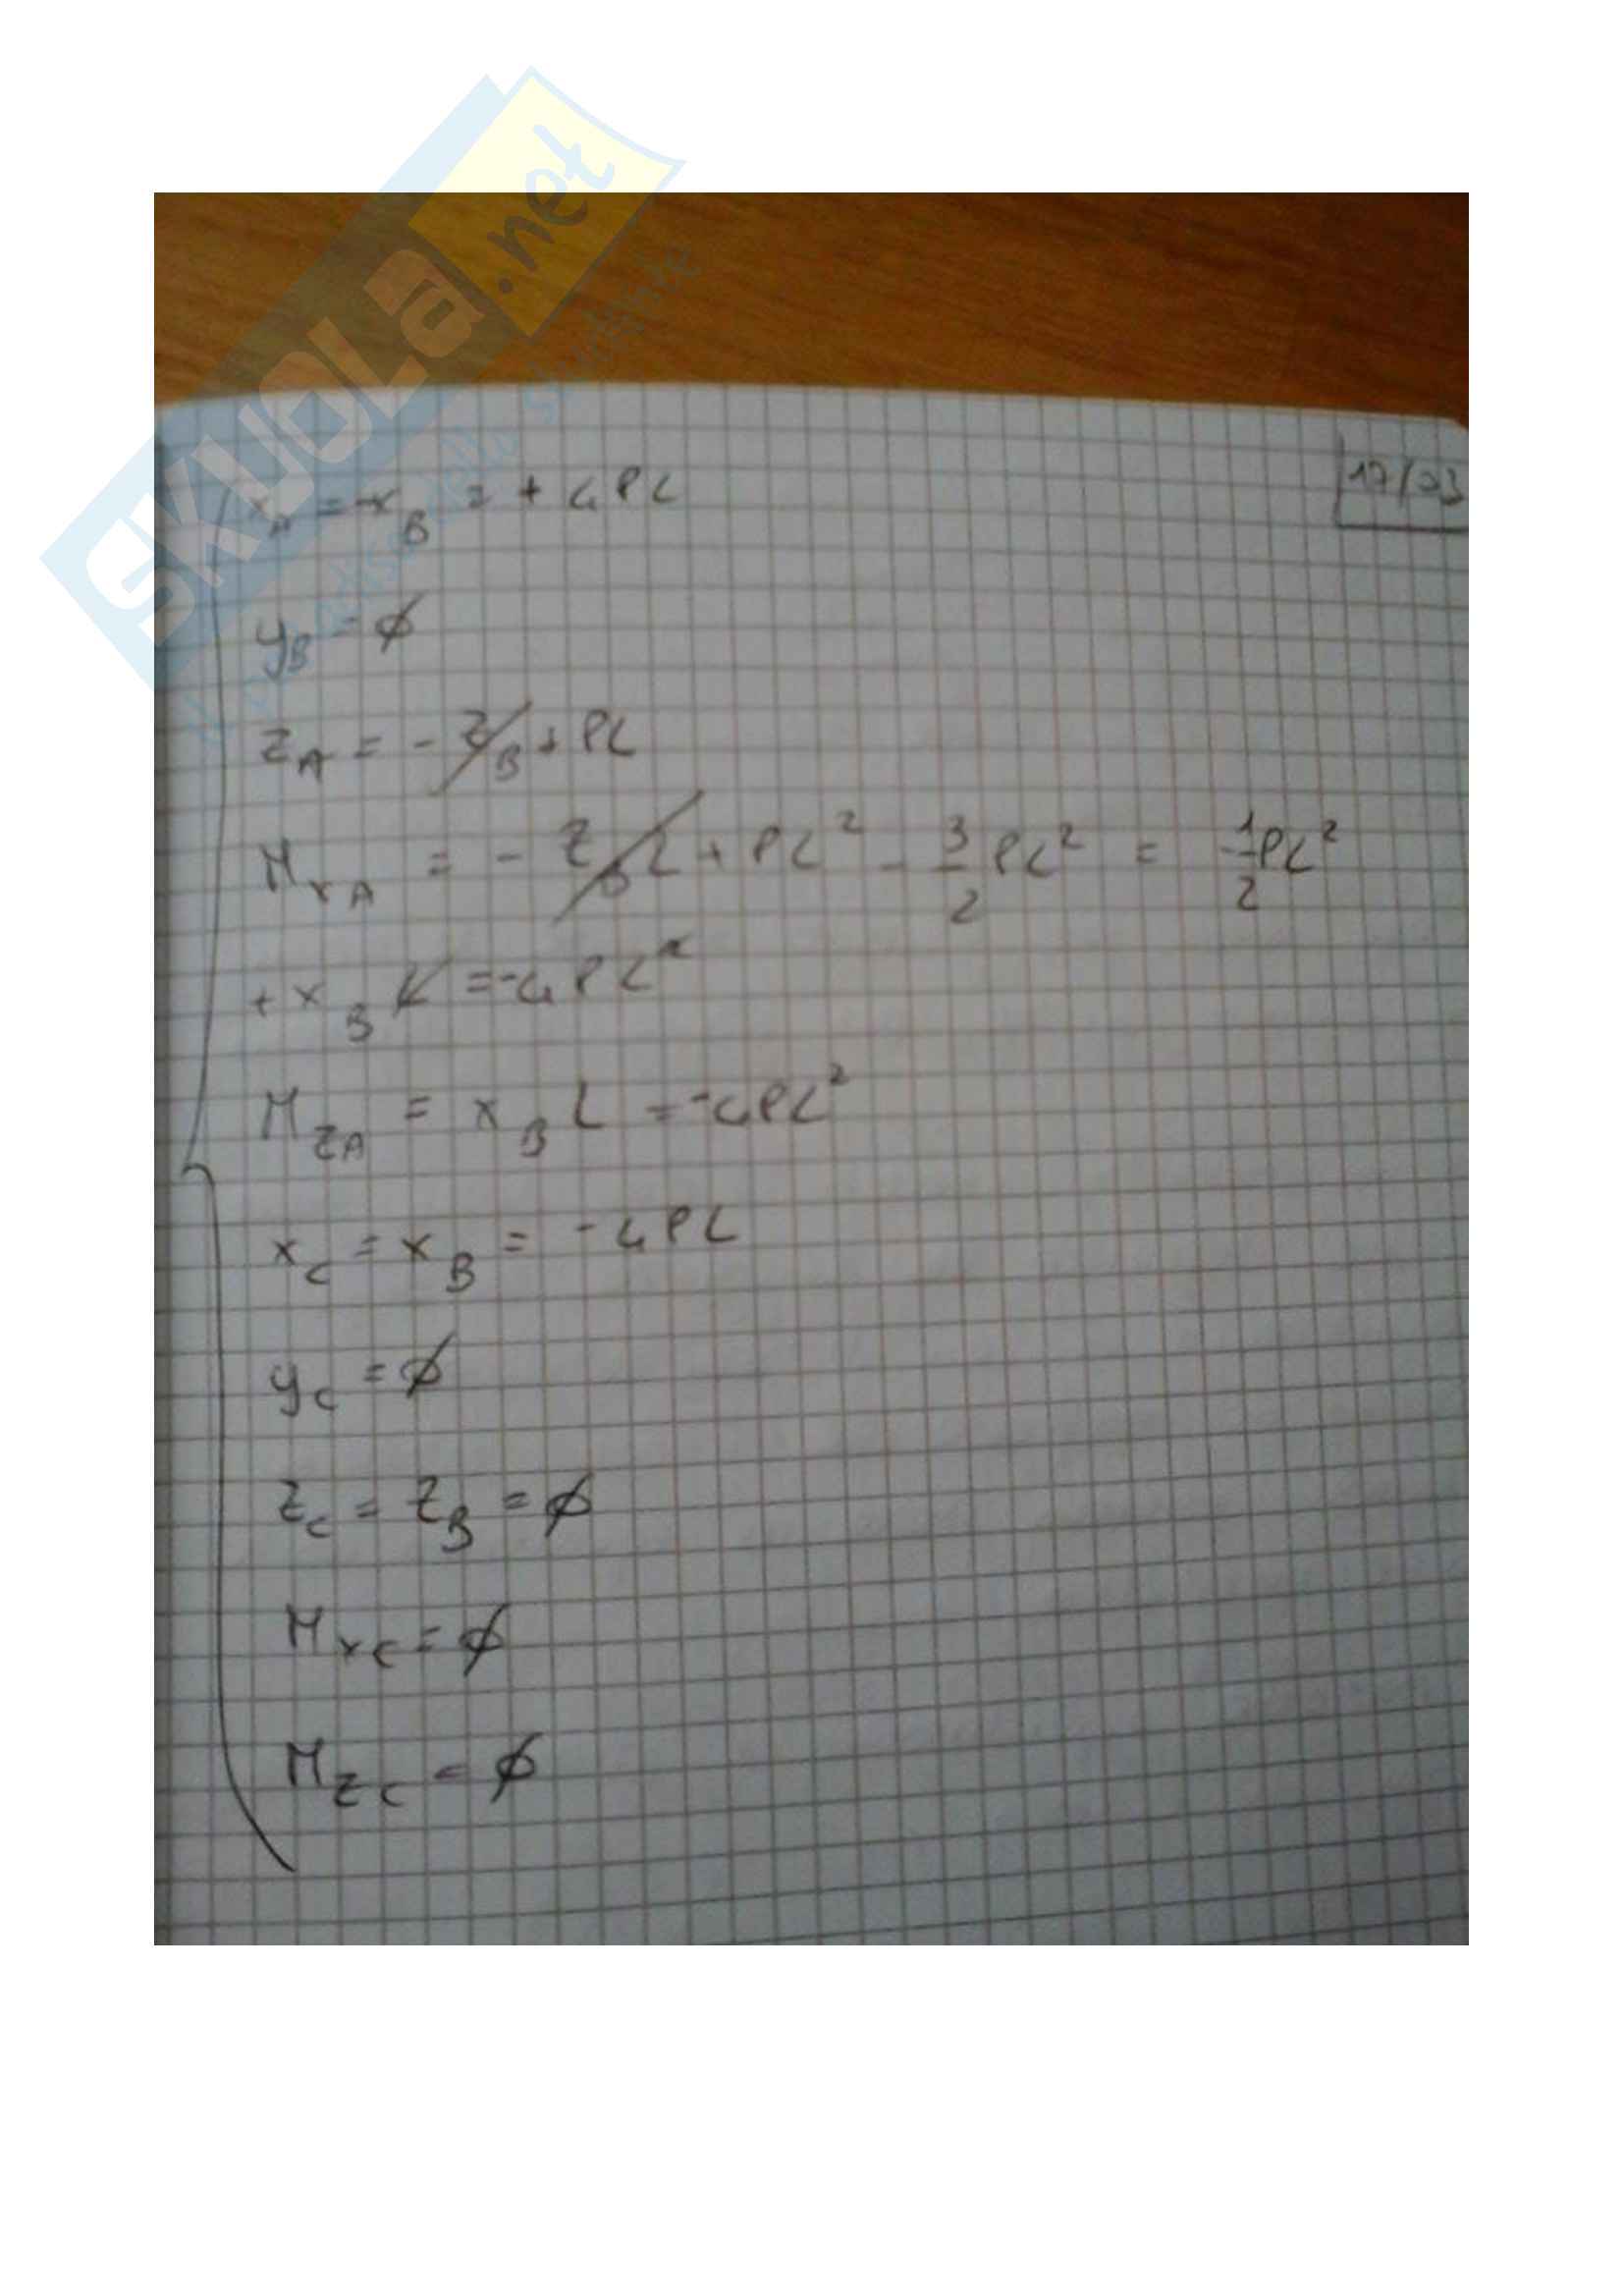 SKUOLA.net
17/23
x_A = -x_B = + 4PL
y_B = ∅
z_A = - z_B + PL
M_xA = - z_B L + PL² - 3/2 PL² = -1/2 PL²
+ x_B L = -4PL²
M_zA = x_B L = -4PL²
x_C = x_B = -4PL
y_C = ∅
z_C = z_B = ∅
M_xC = ∅
M_zC = ∅